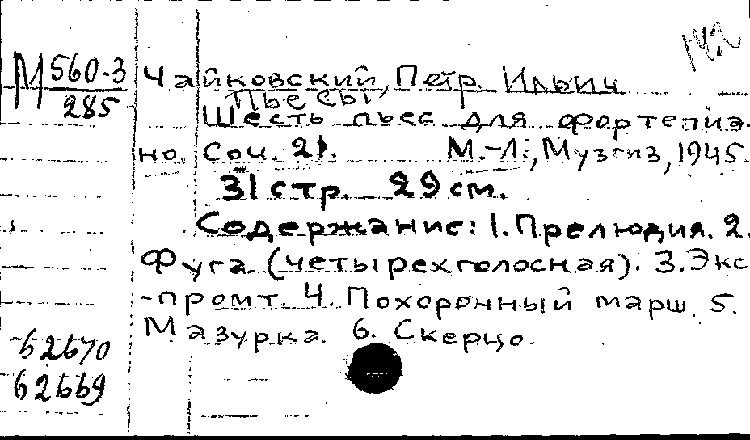 М 560-3 Чайковский, Петр Ильич
285 Пьесы,
Шесть пьес для фортепиа-
но. Соч. 21. М.-Л., Музгиз, 1945.
31 стр. 29 см.
Содержание: 1. Прелюдия. 2.
Фуга (четырехголосная). 3. Экс
-промт. 4. Похоронный марш. 5.
Мазурка. 6. Скерцо.
62670
62669